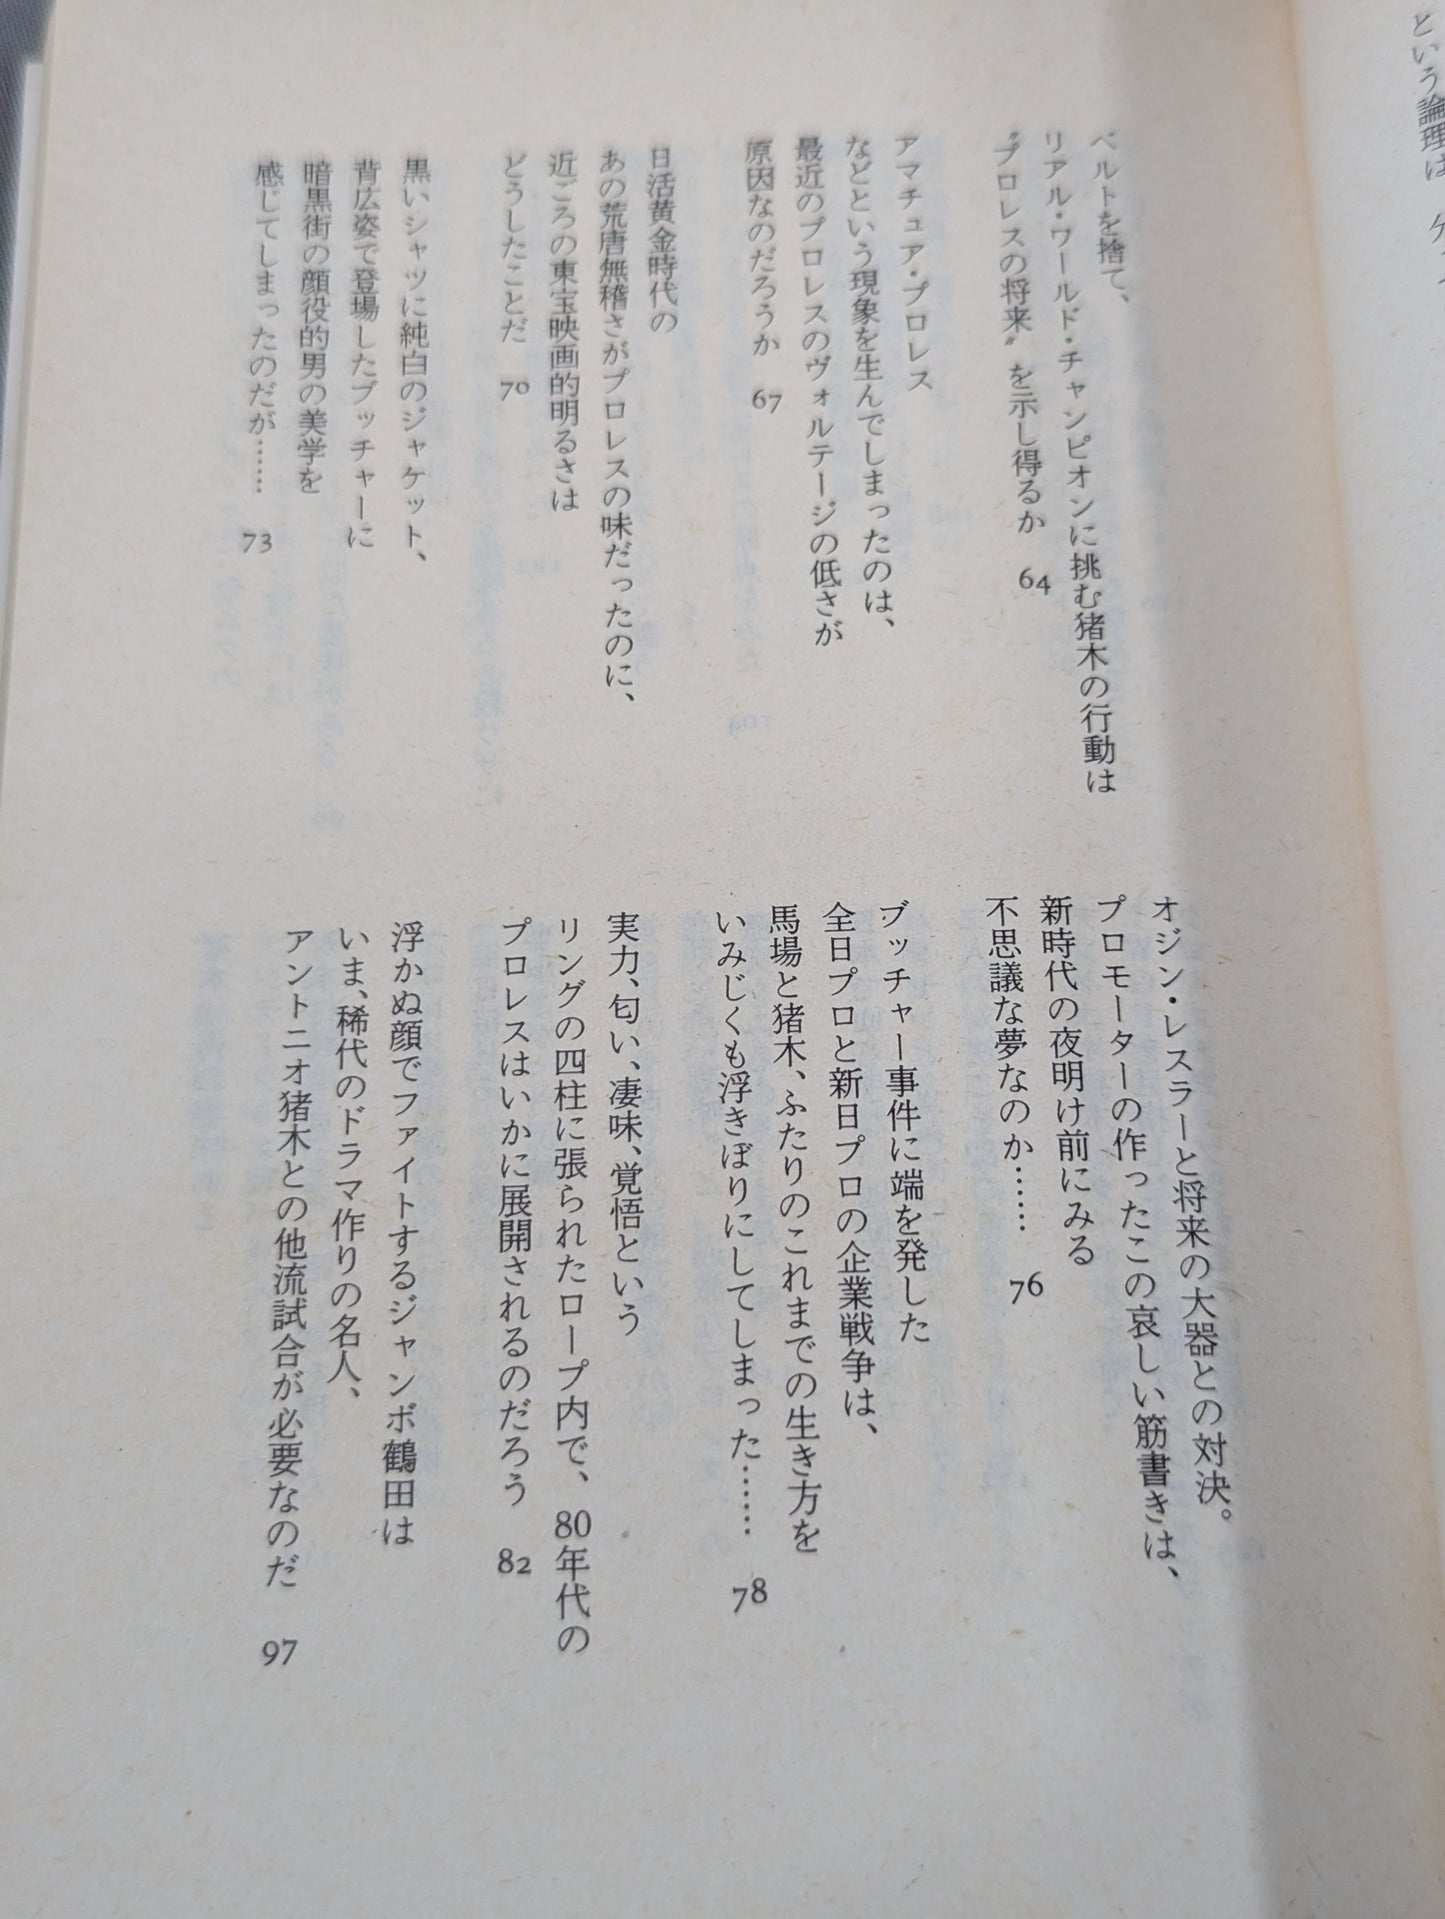 という論理は
ベルトを捨て、
リアル・ワールド・チャンピオンに挑む猪木の行動は
〝プロレスの将来〟を示し得るか 64
アマチュア・プロレス
などという現象を生んでしまったのは、
最近のプロレスのヴォルテージの低さが
原因なのだろうか 67
日活黄金時代の
あの荒唐無稽さがプロレスの味だったのに、
近ごろの東宝映画的明るさは
どうしたことだ 70
黒いシャツに純白のジャケット、
背広姿で登場したブッチャーに
暗黒街の顔役的男の美学を
感じてしまったのだが…… 73
オジン・レスラーと将来の大器との対決。
プロモーターの作ったこの哀しい筋書きは、
新時代の夜明け前にみる
不思議な夢なのか…… 76
ブッチャー事件に端を発した
全日プロと新日プロの企業戦争は、
馬場と猪木、ふたりのこれまでの生き方を
いみじくも浮きぼりにしてしまった…… 78
実力、匂い、凄味、覚悟という
リングの四柱に張られたロープ内で、80年代の
プロレスはいかに展開されるのだろう 82
浮かぬ顔でファイトするジャンボ鶴田は
いま、稀代のドラマ作りの名人、
アントニオ猪木との他流試合が必要なのだ 97